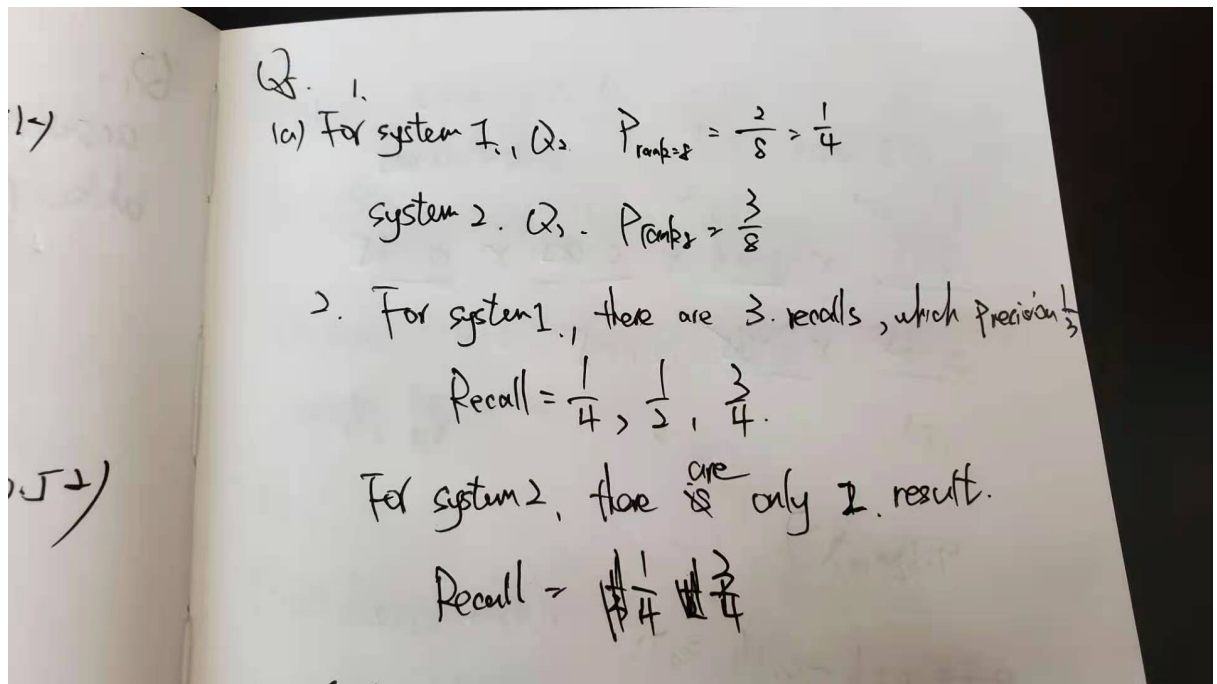 Q. 1.
(a) For system 1., Q2. P rank=8 = 2/8 = 1/4
system 2. Q2. P rank8 = 3/8
2. For system 1., there are 3. recalls, which precision 1/3
Recall = 1/4, 1/2, 3/4.
are
For system 2, there only 2. result.
Recall = 1/4 3/4